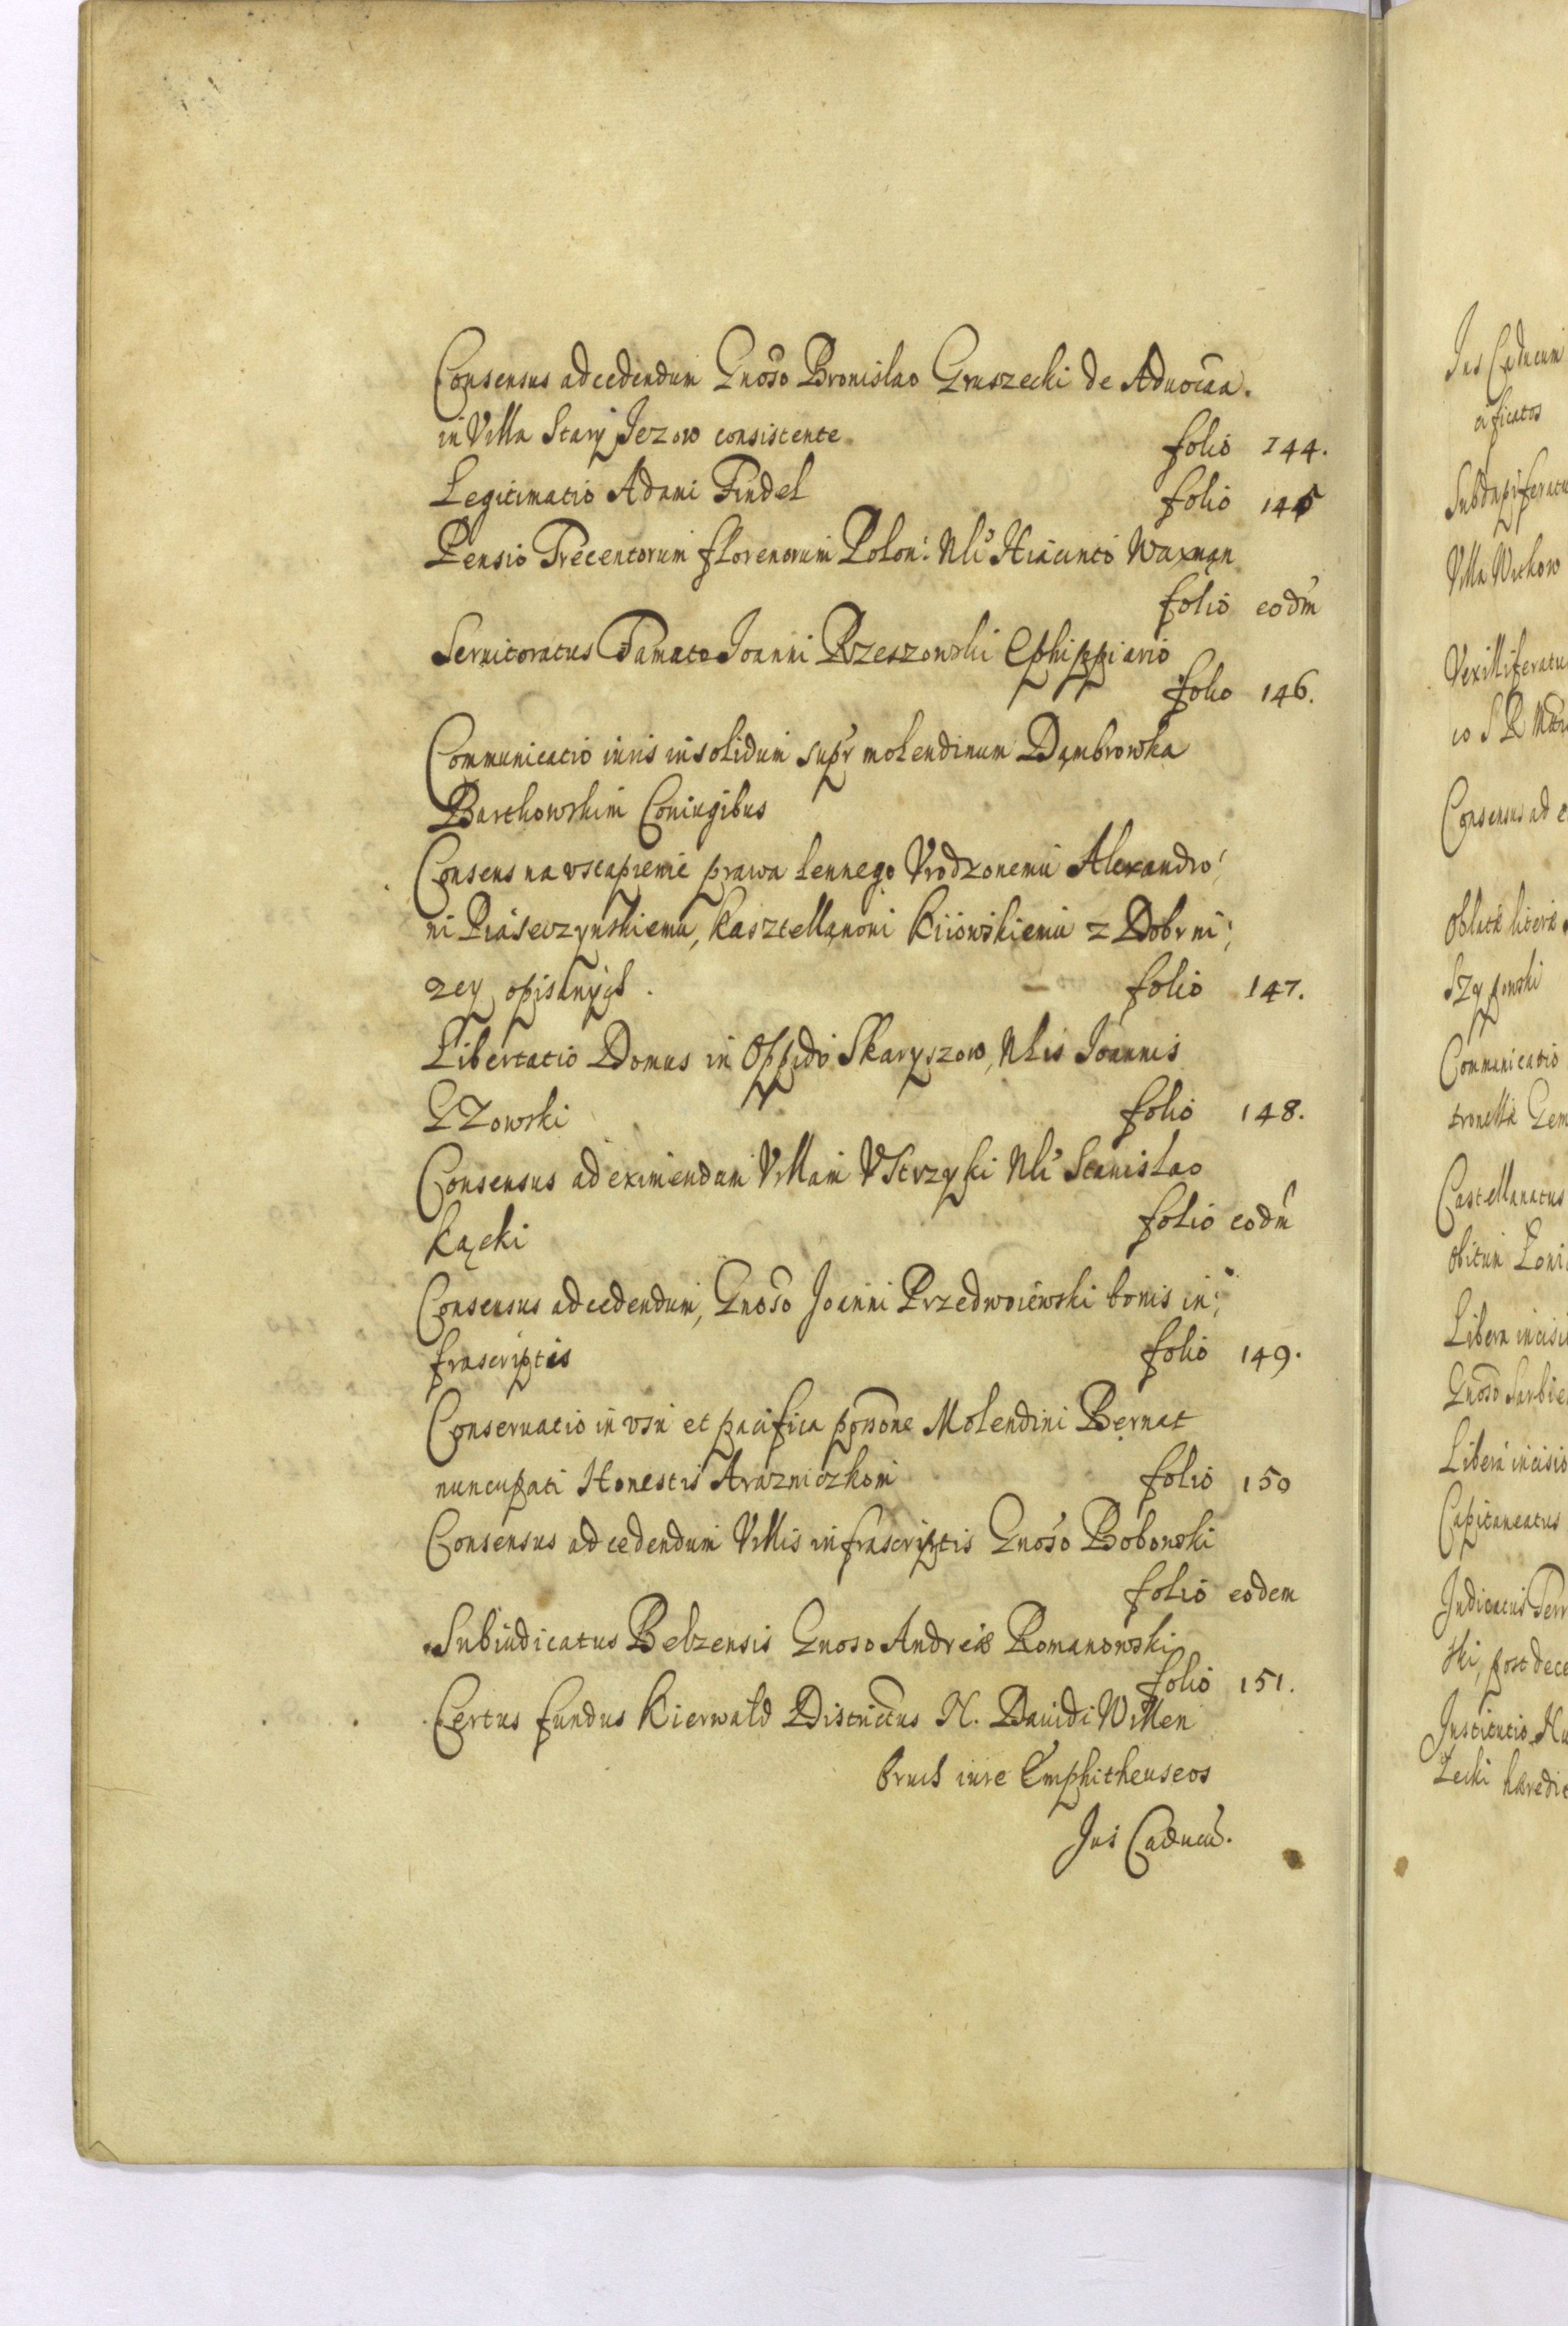 Consensus ad cedendum Gnoso Bronislao Gruszecki de Aduocãa.
in Villa Stary Jezow consistente folio 144.
Legitimatio Adami Findel folio 145
Pensio Trecentorum florenorum Polon: Nli Hiacinto Waxman
folio eodm
Seruitoratus Famato Joanni Rzeszowski Ephippiario
folio 146.
Communicatio iuris in solidum supr molendinum Dąmbrowka
Bartkowskim Coniugibus
Consens na vstąpienie prawa lennego Vrodzonemu Alexandro:
ni Piaseczynskiemu, Kasztellanoni Kiiowskiemu z Dobr ni:
zey opisanych. folio 147.
Libertatio Domus in Oppido Skaryszow, Nlis Joannis
GZowski folio 148.
Consensus ad eximendam Villam VStrzyki Nli Stanislao
Kącki folio eodm
Consensus ad cedendum, Gnoso Joanni Przedwoiewski bonis in:
frascriptis folio 149.
Conseruatio in vsu et pacifica ponone Molendini Bernat
nuncupati Honestis Arazniczkom folio 150
Consensus ad cedendum Villis infrascriptis Gnoso Bobowski
folio eodem
Subiudicatus Belzensis Gnoso Andreæ Romanowski
folio 151.
Certus fundus Kierwald Districtus N. Dauidi Willen
bruch iure Emphitheuseos
Jus Caducũ.
Jus Caducum
Villa Witkow
Consensus ad
Communicatio
Castellanatus